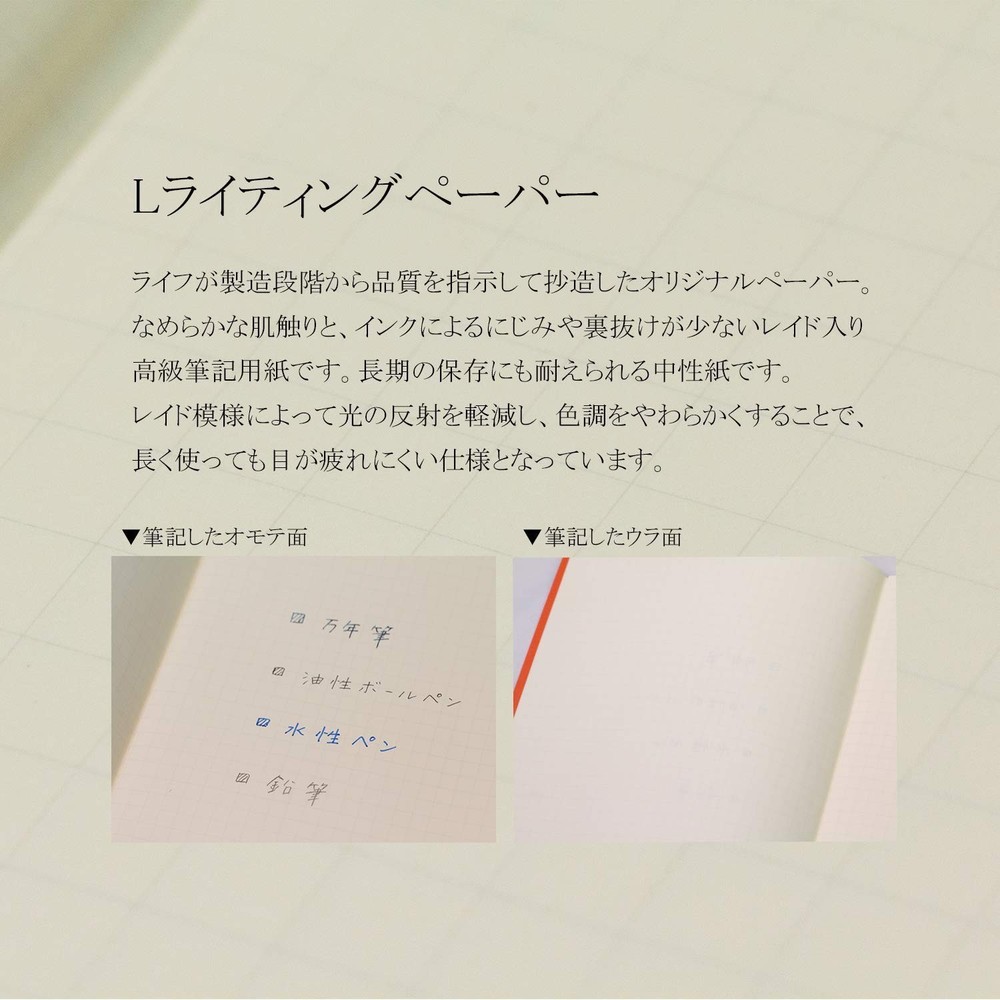 Lライティングペーパー
ライフが製造段階から品質を指示して抄造したオリジナルペーパー。
なめらかな肌触りと、インクによるにじみや裏抜けが少ないレイド入り
高級筆記用紙です。長期の保存にも耐えられる中性紙です。
レイド模様によって光の反射を軽減し、色調をやわらかくすることで、
長く使っても目が疲れにくい仕様となっています。
▼筆記したオモテ面
▼筆記したウラ面
万年筆
油性ボールペン
水性ペン
鉛筆